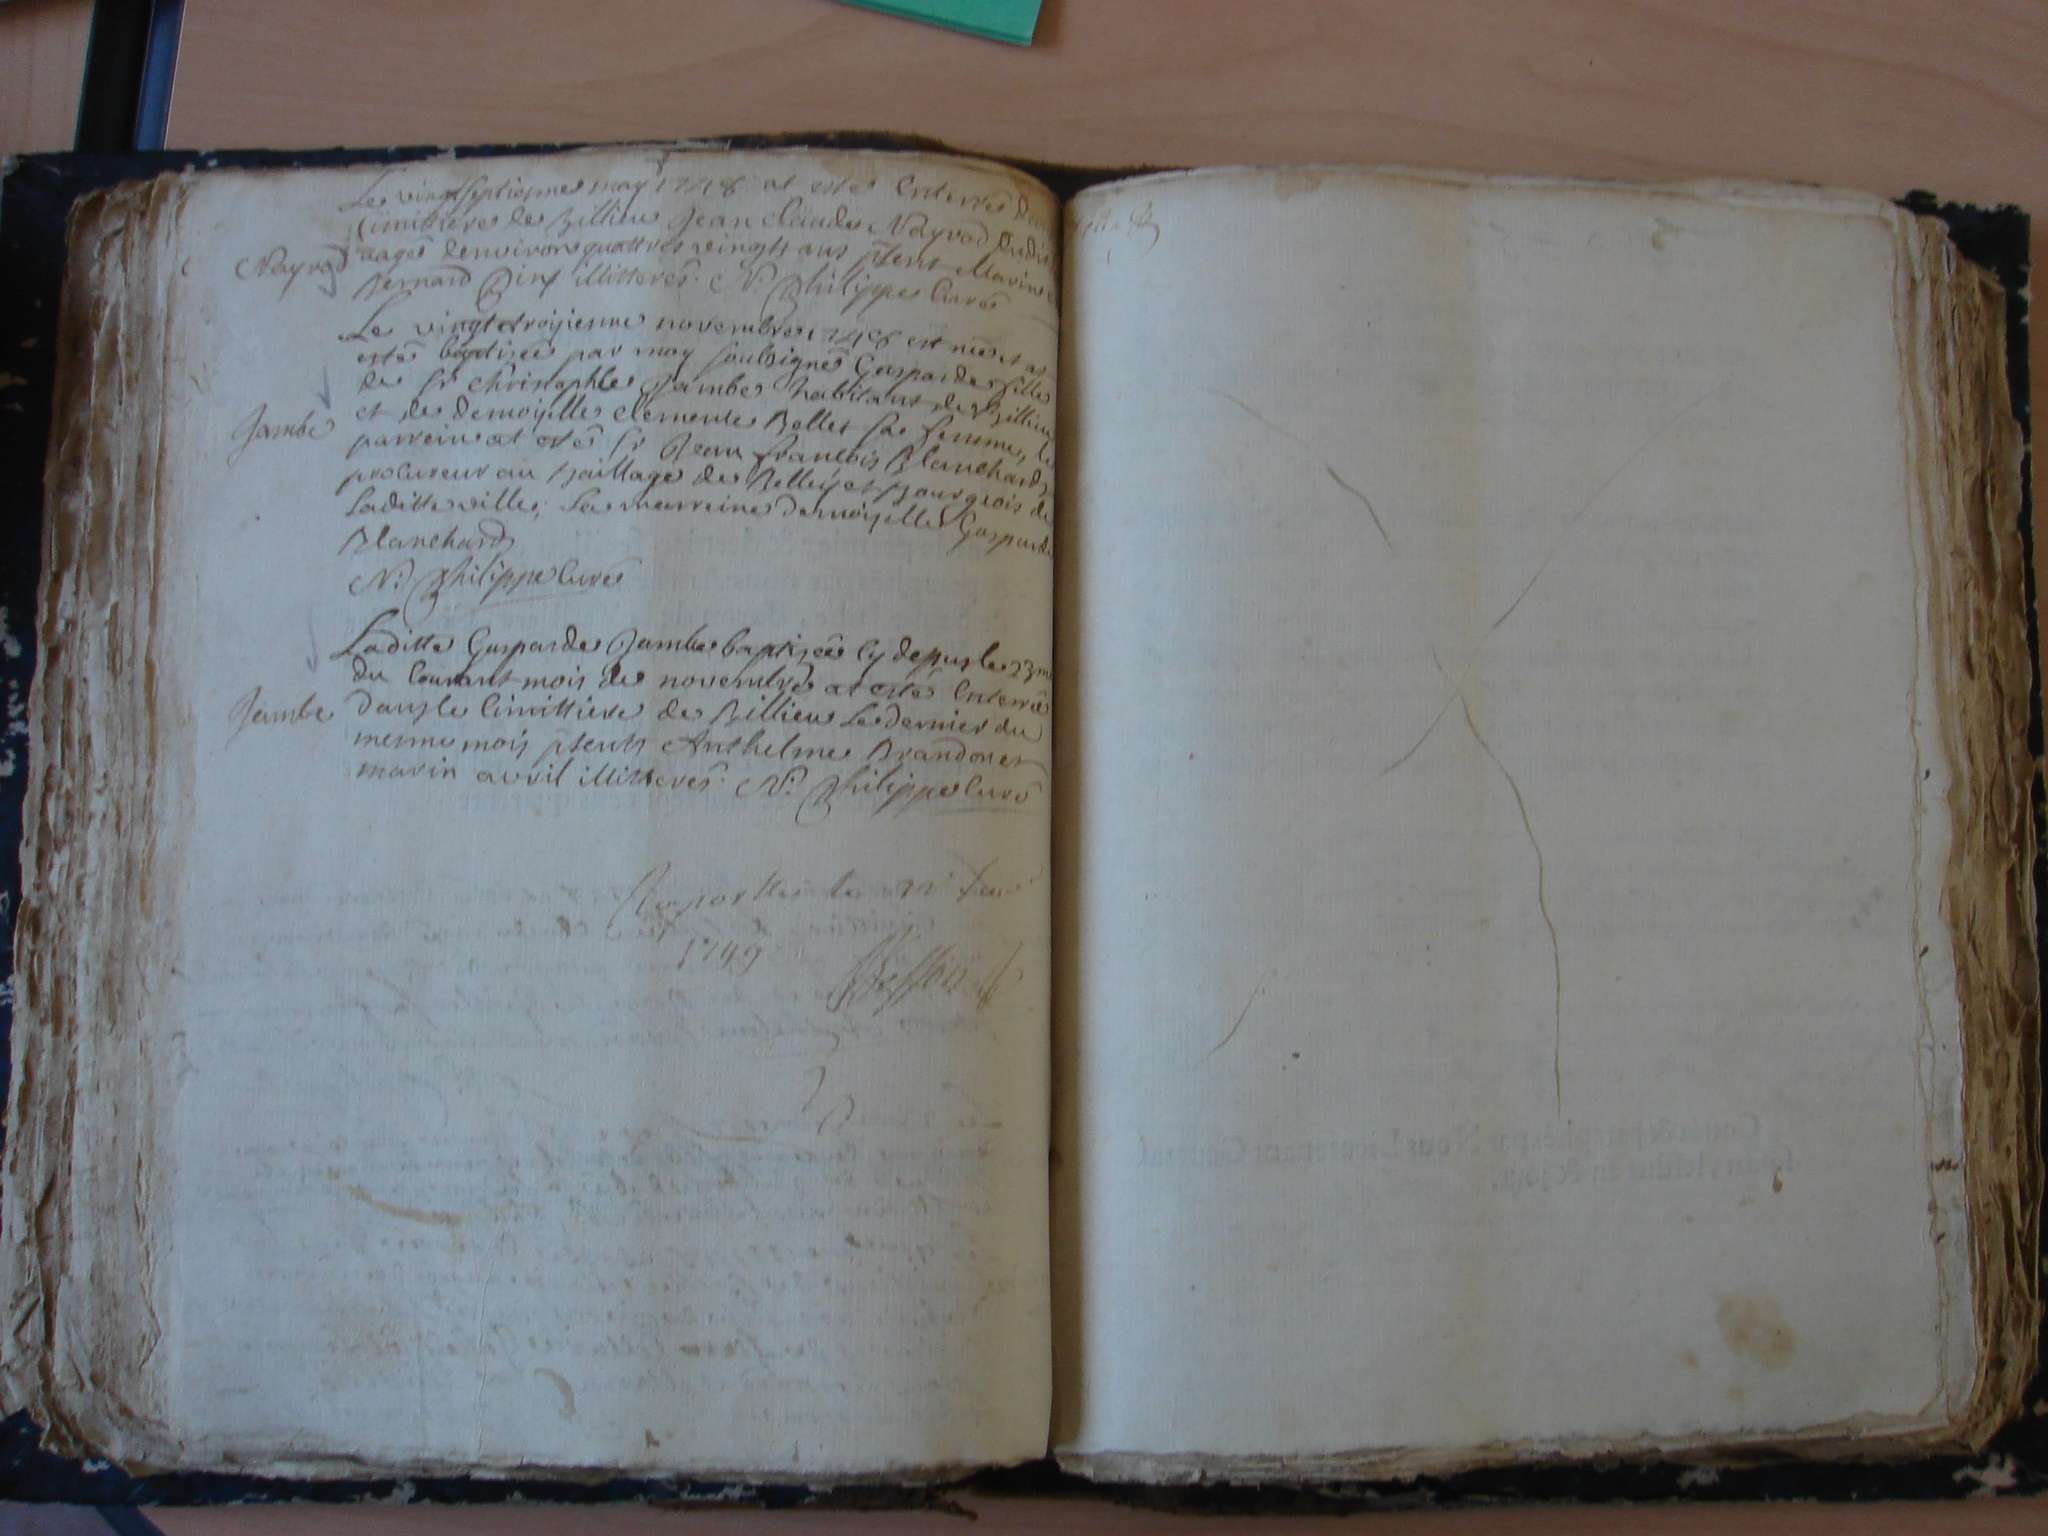 Le vingtseptiesme may 1748 at esté Enterré dans
Cimittiere de Billieu Jean Claude Nayrod dudit
Nayrod
aagé denviron quattre veingts ans pñts Marin
Bernard illitterés. N. Philippe Curé
Le vingt troisienme novembre 1748 est née et at
esté baptizée par moy soubsigné Gasparde fille
de Sr Christophle Jambe habitant de Billieu
Jambe
et de demoiselle Clemence Bellet sa femme, le
parrein at esté Sr Jean François Blanchard
procureur au Baillage de Belley et Bourgeois de
Laditte ville; La marreine demoiselle Gasparde
Blanchard
N. Philippe Curé
Laditte Gasparde Jambe baptizée Cy depusle 23me
du Courant mois de novembre at esté Enterrée
Jambe
dansle Cimittiere de Billieu Le dernier du
mesme mois pñts Anthelme Brandon et
marin avril illitterés. N. Philippe Curé
Raporttes le 22
1749
Cotté & paraphé par Nous Lieutenant General